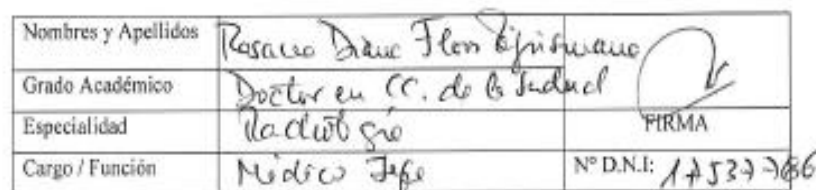 Nombres y Apellidos Rosario Diane Flor
Grado Académico Doctor en CC. de la Salud
Especialidad Radiología FIRMA
Cargo / Función Médico Jefe N° D.N.I: